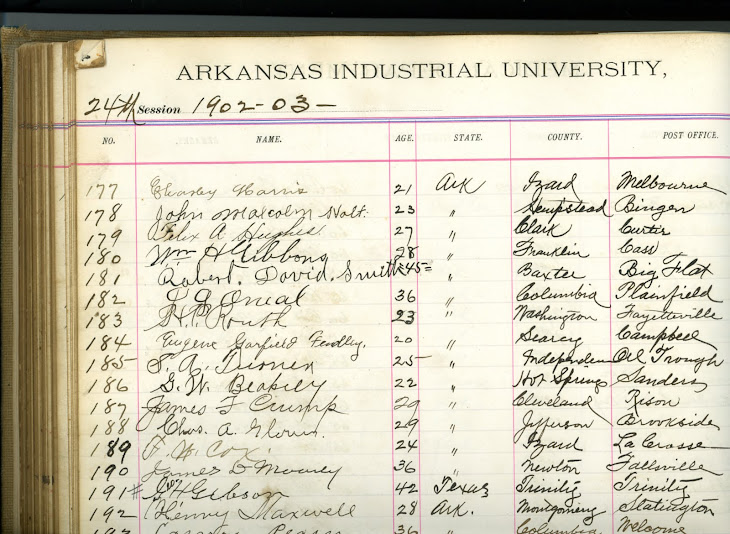 ARKANSAS INDUSTRIAL UNIVERSITY,
24th Session 1902-03-
NO. NAME. AGE. STATE. COUNTY. POST OFFICE.
177 Charley Harris 21 Ark Izard Melbourne
178 John Malcolm Holt. 23 " Hempstead Bingen
179 Felix A Hughes 27 " Clark Curtis
180 Wm H Gibbons 28 " Franklin Cass
181 Robert. David. Smith 45 " Baxter Big Flat
182 36 " Columbia Plainfield
183 Routh 23 " Washington Fayetteville
184 Eugene Garfield Fendley. 20 " Searcy Campbell
185 25 " Independen Oil Trough
186 G. W. Beasley 22 " Hot Springs Sanders
187 James F Crump 29 " Cleveland Rison
188 Chas. A. 29 " Jefferson Brookside
189 Cox. 24 " Izard La Crosse
190 James D 36 " Newton Fallsville
191 Gibson 42 Texas Trinity Trinity
192 Henry Maxwell 28 Ark. Montgomery Slatington
36 " Columbia Welcome